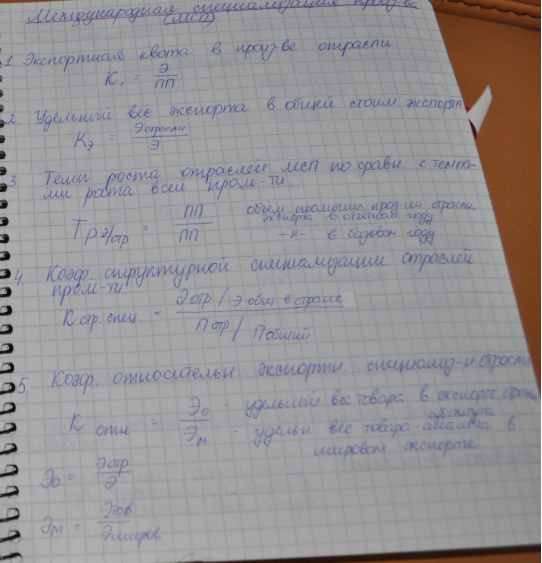 Международная специализация произ-ва
(МСП)
1 Экспортная квота в произ-ве отрасли
К₁ = Э / ПП
2. Удельный вес экспорта в общей стоим экспорта
Кэ = Э отрасли / Э
3. Темпы роста отраслей МСП по сравн. с темпа-
ми роста всей пром-ти
Тр э/отр = ПП / ПП
объем промышл. прод-ии отрасли,
экспорта в отчетном году
-//- в базовом году
4. Коэф. структурной специализации отраслей
пром-ти
К стр. спец. = Э отр / Э общ в стране
П отр / П общий
5. Коэф. относительн экспортн. специализ-и отрасли
К отн = Эо / Эм
Эо - удельный вес товара в экспорте страны
Эм - удельн вес товара аналога в
мировом экспорте
Эо = Э отр / Э
Эм = Э тов / Э миров